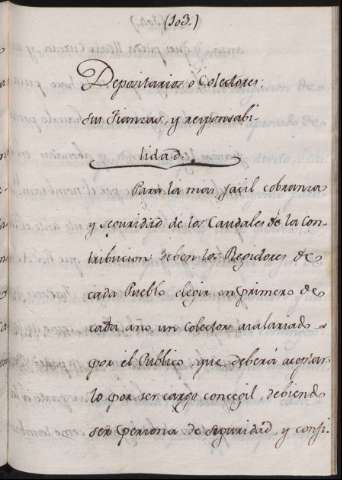 (103.)
Depositarios o Colectores
su Fianzas, y responsabi-
lidad.
Para la mas facil cobranza
y seguridad de los Caudales de la Con
tribucion deben los Regidores de
cada Pueblo elegir en primero de
cada año un Colector asalariado
por el Publico que deberá aceptar
lo por ser cargo concegil debiendo
ser persona de seguridad, y confi-